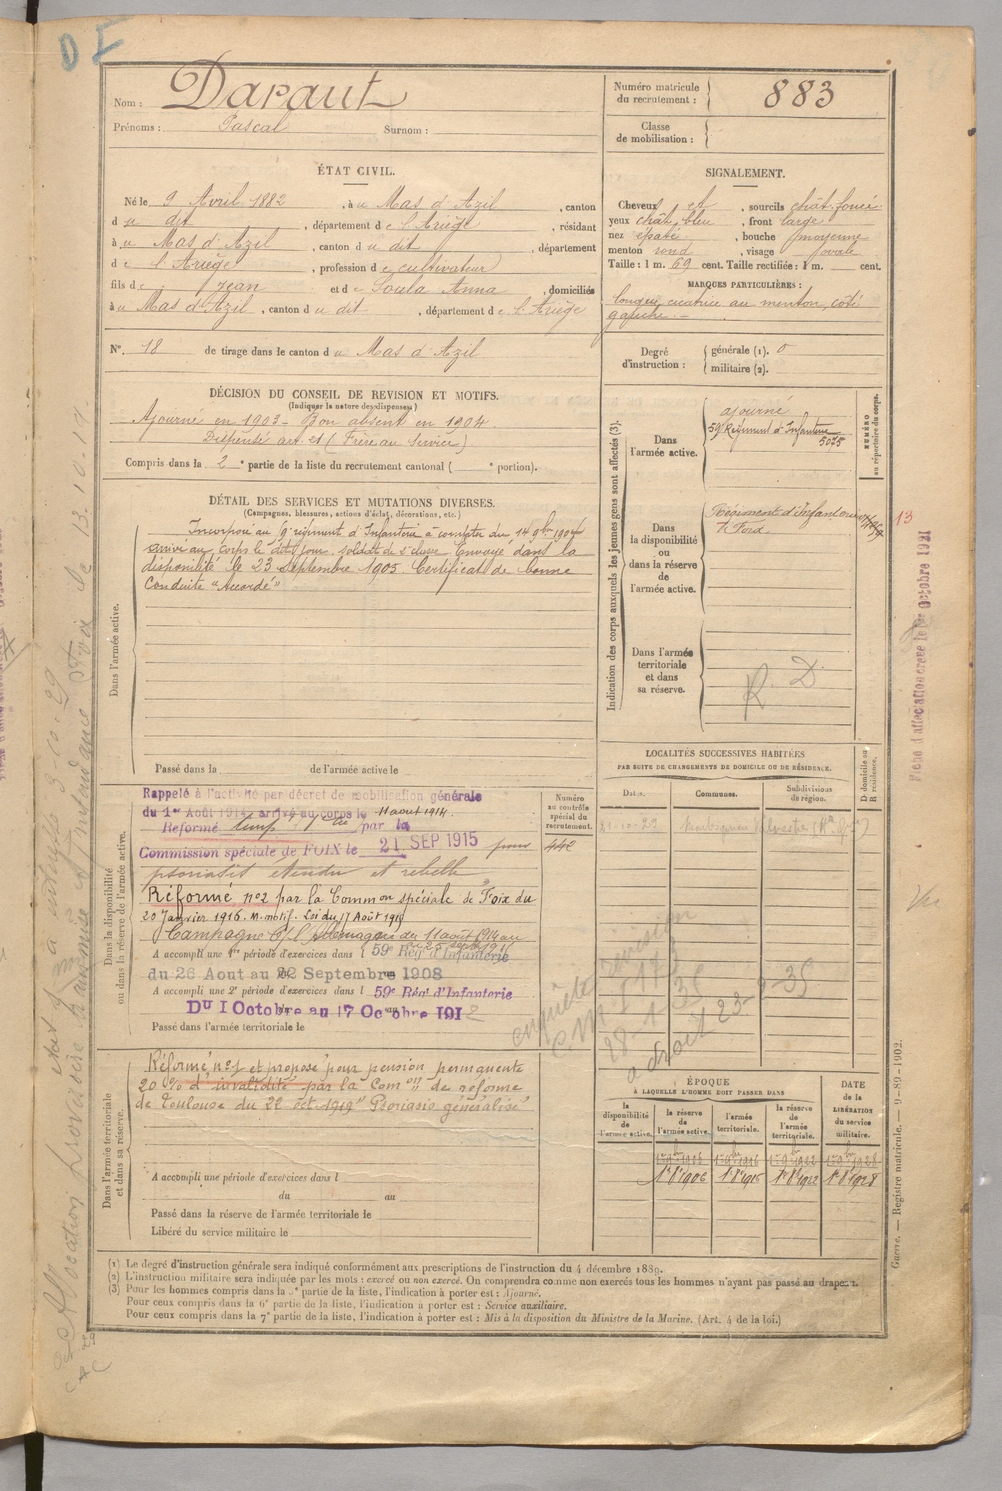 DF
Nom : Daraut
Prénoms : Pascal Surnom :
Numéro matricule du recrutement : 883
Classe de mobilisation :
ÉTAT CIVIL.
Né le 9 Avril 1882, à u Mas d'Azil, canton
d u dit, département de l'Ariège, résidant
à u Mas d'Azil, canton d u dit, département
d e l'Ariège, profession d e cultivateur
fils d e Jean et d e Soula Anna, domiciliés
à u Mas d'Azil, canton d u dit, département d e l'Ariège
N° 18 de tirage dans le canton d u Mas d'Azil
SIGNALEMENT.
Cheveux et, sourcils chât. foncé
yeux chât. bleu, front large
nez épaté, bouche moyenne
menton rond, visage ovale
Taille : 1 m. 69 cent. Taille rectifiée : 1 m. cent.
MARQUES PARTICULIÈRES :
longue cicatrice au menton, côté
gauche.
Degré d'instruction : générale (1). 0
militaire (2).
DÉCISION DU CONSEIL DE REVISION ET MOTIFS.
(Indiquer la nature des dispenses)
Ajourné en 1903 - Bon absent en 1904
Dispensé art. 21 (Frère au Service)
Compris dans la 2e partie de la liste du recrutement cantonal ( e portion).
DÉTAIL DES SERVICES ET MUTATIONS DIVERSES.
(Campagnes, blessures, actions d'éclat, décorations, etc.)
Dans l'armée active.
Incorporé au 9e régiment d'Infanterie à compter du 14 9bre 1904
arrivé au corps le dit jour, soldat de 2e classe. Envoyé dans la
disponibilité le 23 Septembre 1905. Certificat de bonne
Conduite "Accordé"
Passé dans la de l'armée active le
Indication des corps auxquels les jeunes gens sont affectés (3).
NUMÉRO au répertoire du corps.
Dans l'armée active.
ajourné
59e Régiment d'Infanterie
5075
Dans la disponibilité ou dans la réserve de l'armée active.
Régiment d'Infanterie
de Foix
13
Dans l'armée territoriale et dans sa réserve.
R. D.
Fiche d'affectation créée le 1er Octobre 1921
LOCALITÉS SUCCESSIVES HABITÉES
PAR SUITE DE CHANGEMENTS DE DOMICILE OU DE RÉSIDENCE.
Dates. Communes. Subdivisions de région. D domicile ou R résidence.
Dans la disponibilité ou dans la réserve de l'armée active.
Numéro au contrôle spécial du recrutement.
442
Rappelé à l'activité par décret de mobilisation générale
du 1er Août 1914, arrivé au corps le 11 aout 1914
Réformé temp. par la
Commission spéciale de FOIX le 21 SEP 1915 pour
psoriasis étendu et rebelle
Réformé n°2 par la Common spéciale de Foix du
20 Janvier 1916. M. motif. Loi du 17 Août 1915
Campagne C/ l'Allemagne du 11 août 1914 au
A accompli une 1re période d'exercices dans l 59e Rég' d'Infanterie
du 26 Aout au 22 Septembre 1908
A accompli une 2e période d'exercices dans l 59e Rég' d'Infanterie
Du 1 Octobre au 17 Octobre 1912
Passé dans l'armée territoriale le
enquête revision
Dans l'armée territoriale et dans sa réserve.
Réformé n°1 et proposé pour pension permanente
20 % d'invalidité par la Comon de reforme
de Toulouse du 22 oct. 1919 "Psoriasis généralisé"
A accompli une période d'exercices dans l
du au
Passé dans la réserve de l'armée territoriale le
Libéré du service militaire le
ÉPOQUE
À LAQUELLE L'HOMME DOIT PASSER DANS
DATE de la LIBÉRATION du service militaire.
la disponibilité de l'armée active. la réserve de l'armée active. l'armée territoriale. la réserve de l'armée territoriale.
1er 8bre 1906 1er 8bre 1915 1er 8bre 1922 1er 8bre 1928
(1) Le degré d'instruction générale sera indiqué conformément aux prescriptions de l'instruction du 4 décembre 1889.
(2) L'instruction militaire sera indiquée par les mots : exercé ou non exercé. On comprendra comme non exercés tous les hommes n'ayant pas passé au drapeau.
(3) Pour les hommes compris dans la 5e partie de la liste, l'indication à porter est : Ajourné.
Pour ceux compris dans la 6e partie de la liste, l'indication à porter est : Service auxiliaire.
Pour ceux compris dans la 7e partie de la liste, l'indication à porter est : Mis à la disposition du Ministre de la Marine. (Art. 4 de la loi.)
Guerre. — Registre matricule. — 9-89-1902.